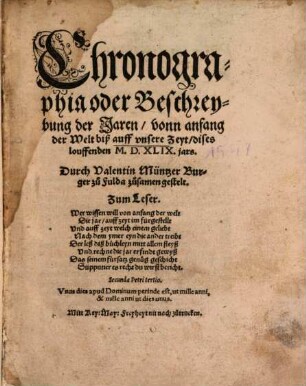 Chronogra-
phia oder Beschrey-
bung der Jaren / vonn anfang
der Welt biß auff vnsere Zeyt / dises
louffenden M. D. XLIX. jars.
Durch Valentin Müntzer Bur-
ger zů Fulda zůsamen gestelt.
Zum Leser.
Wer wissen will von anfang der welt
Die jar / auff zeyt im fürgestellt
Vnd auff zeyt welch einen geliebt
Nach dem ymer eyn die ander reicht
Der leß diß büchleyn mit allem fleyß
Vnd rechne die jar er findt gewyß
Das seinem fürsatz genůg geschicht
Supputier es recht du wirst bericht.
Secunda Petri tertio.
Vnus dies apud Dominum perinde est, ut mille anni,
& mille anni ut dies unus.
Mitt Key: May: Freyheyt nit nach zůtrucken.